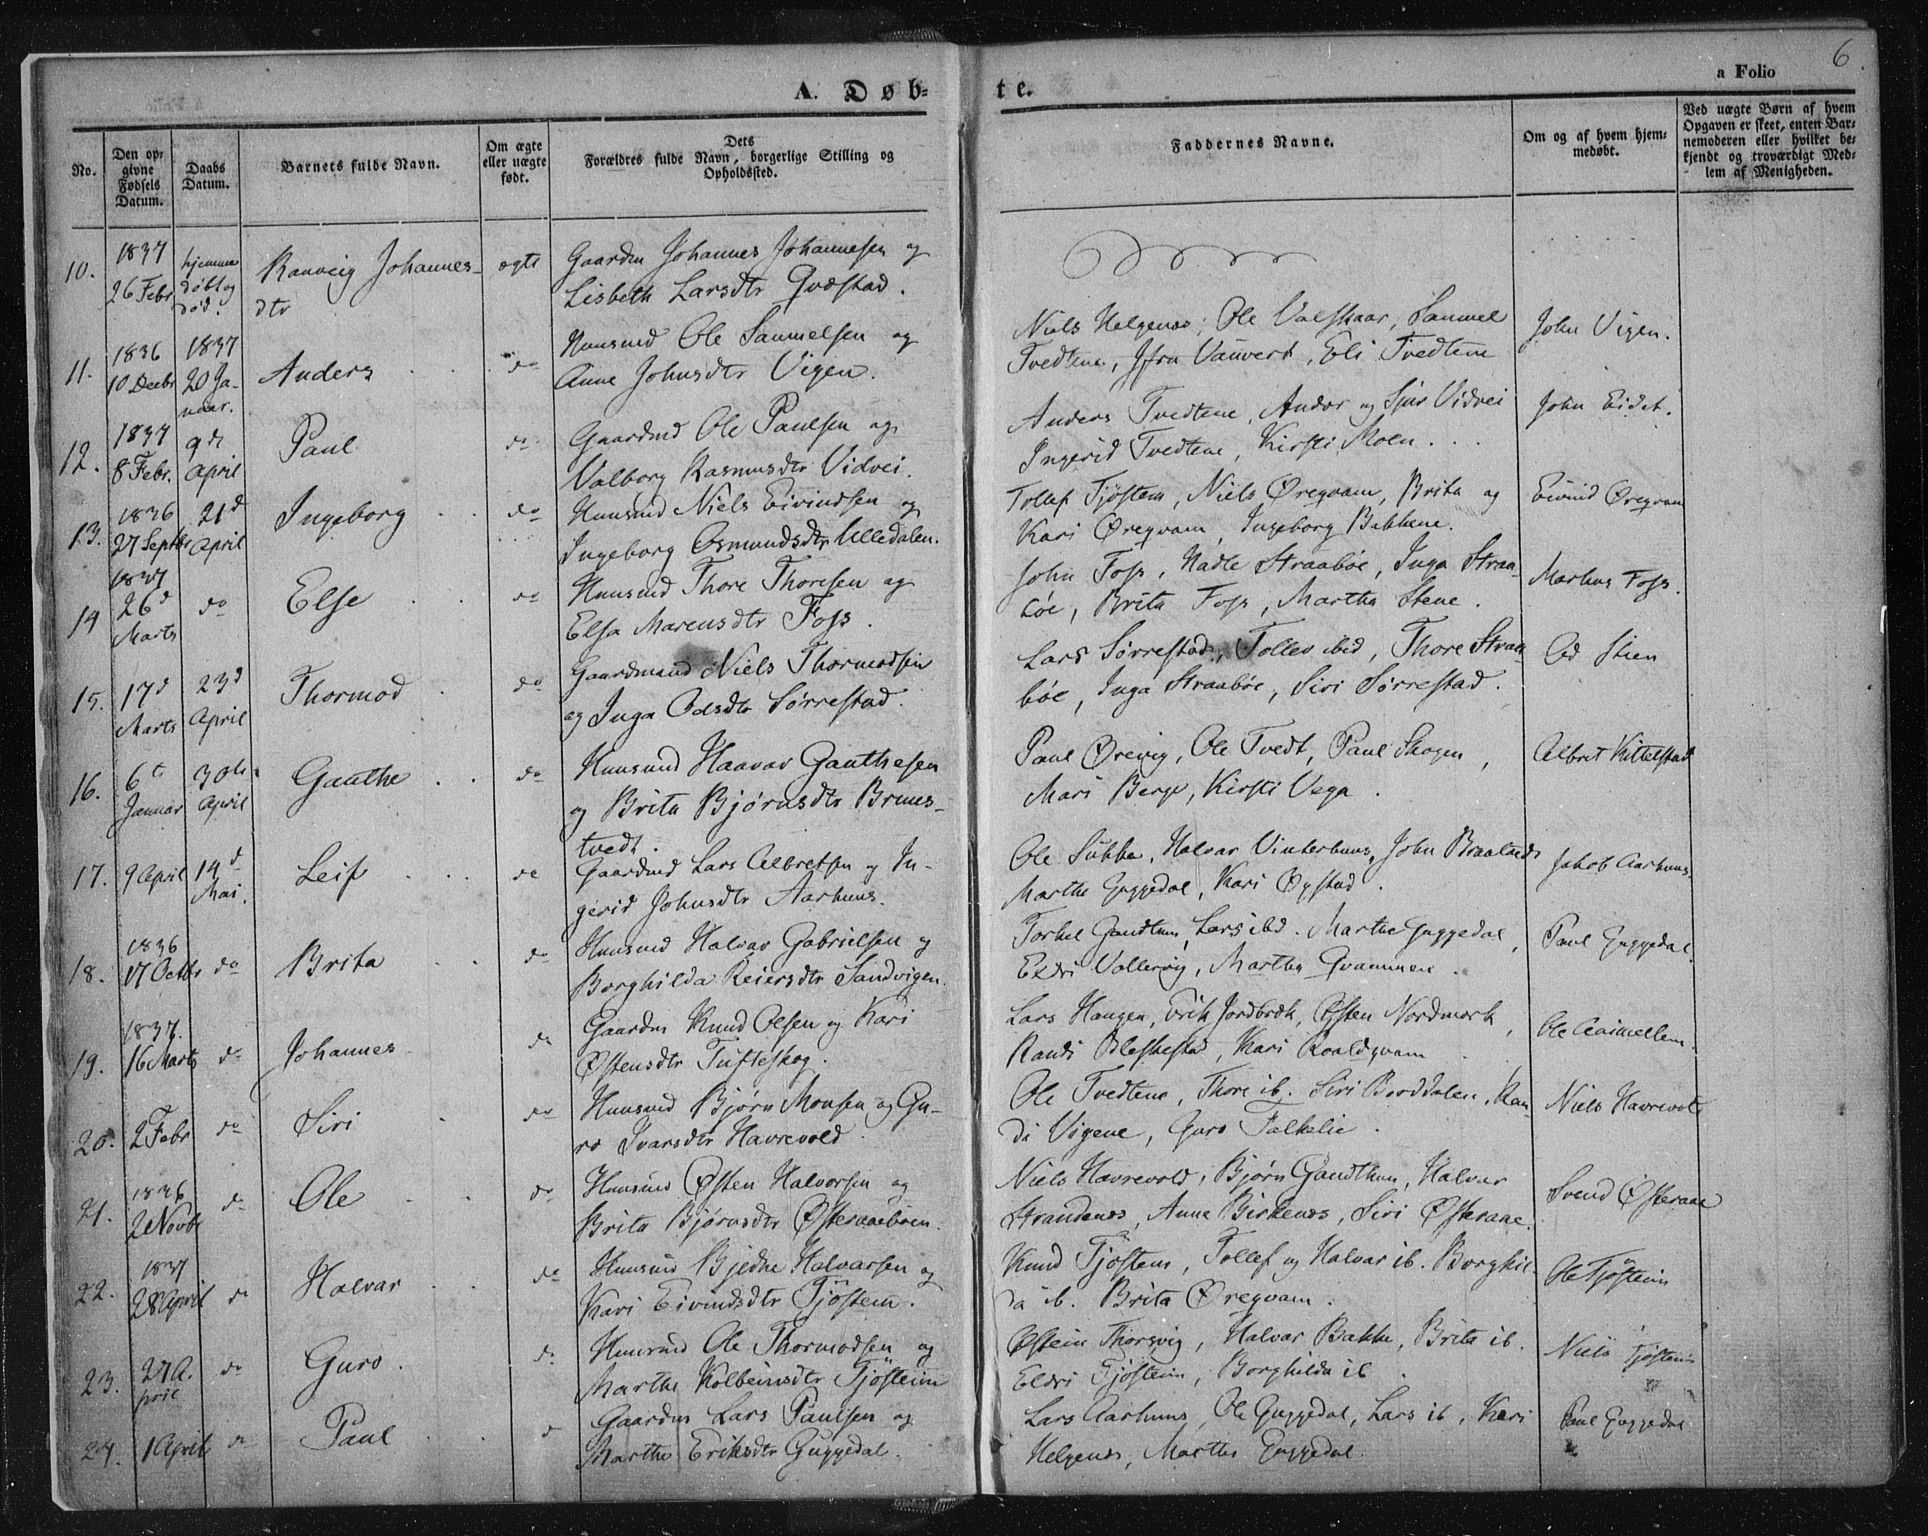 6.
a Folio
A. Døb-
te.
No.
Den op-
givne
Fødsels
Datum.
Daabs
Datum.
Barnets fulde Navn.
Om ægte
eller uægte
født.
Dets
Forældres fulde Navn, borgerlige Stilling og
Opholdssted.
Faddernes Navne.
Om og af hvem hjem-
medøbt.
Ved uægte Børn af hvem
Opgaven er skeet, enten Bar-
nemoderen eller hvilket be-
kjendt og troværdigt Med-
lem af Menigheden.
10.
1837
26 Febr
hjemme
døbt og
død.
Ranveig Johannes-
dtr
ægte
Gaardm Johannes Johannesen og
Lisbeth Larsdtr Qvæstad.
11.
1836
10 Decbr
1837
20 Ja-
nuar.
Anders
do
Huusmd Ole Samuelsen og
Anne Johnsdtr Vigen.
Niels Helgenæs, Ole Valskaar, Samuel
Tvedtene, Jfru Vauvert, Eli Tvedtene
John Vigen.
12.
1837
8 Febr.
9de
April
Paul
do
Gaardmd Ole Paulsen og
Valborg Rasmusdtr Vidvei.
Anders Tvedtene, Andor og Sjur Vidvei
Ingerid Tvedtene, Kirsti Moen.
John Eidet.
13.
1836
27 Septbr
21d
April
Ingeborg
do
Huusmd Niels Eivindsen og
Ingeborg Osmundsdtr Ulledalen.
Tollef Tjøstem, Niels Øregvam, Brita og
Kari Øregvam, Ingeborg Bakkene.
Eivind Øregvam
14
1837
26d
Marts
do
Else
do
Huusmd Thore Thoresen og
Elsa Marcusdtr Foss.
John Foss, Nadle Straabøe, Inga Straa-
bøe, Brita Foss, Martha Stene.
Markus Foss.
15.
17d
Marts
23d
April
Thormod
do
Gaardmand Niels Thormodsen
og Inga Odsdtr Sørrestad.
Lars Sørrestad, Tollev ibid, Thore Straa-
bøe, Inga Straabøe, Siri Sørrestad.
Od Stien
16.
6t
Januar
30te
April
Gauthe
do
Huusmd Haavar Gauthesen
og Brita Bjørnsdtr Brunes-
tvedt.
Paul Ørevig, Ole Tvedt, Paul Skogen,
Mari Berge, Kirsti Vega.
Albret Kittelstad
17.
9 April
14d
Mai.
Leif
do
Gaardmd Lars Albretsen og In-
gerid Johnsdtr Aarhuus.
Ole Subbe, Halvar Vinterhuus, John Braaland
Marthe Guggedal, Kari Øystad.
Jakob Aarhuus.
18.
1836
17 Octbr
do
Brita
do
Huusmd Halvar Gabrielsen og
Borghilda Reiersdtr Sandvigen.
Torkel Gandthun, Lars ibd. Marthe Guggedal,
Eldri Vallervig, Martha Qvammen.
Paul Guggedal.
19.
1837.
16 Marts
do
Johannes
do
Gaardm Knud Olsen og Kari
Østensdtr Tufteskog.
Lars Haugen, Erik Jordbræk, Østen Nordmork,
Randi Bleskestad, Kari Roaldqvam
20.
2 Febr
do
Siri
do
Huusmd Bjørn Monsen og Gu-
ro Ivarsdtr Havrevold.
Ole Tvedtene, Thore ib. Siri Borddalen, Ran-
di Vigene, Guro Falkelie.
21.
1836
2 Novbr
do
Ole
do
Huusmd Østen Halvorsen og
Brita Bjørnsdtr Østeraaebøen.
Niels Havrevold, Bjørn Gandthun, Halvar
Strandenæs, Anne Birkenæs, Siri Østeraae.
Svend Østeraae
22.
1837
28 April
do
Halvar
do
Huusmd Bjedne Halvarsen og
Kari Eivindsdtr Tjøstem.
Knud Tjøstem, Tollef og Halvar ib. Borghil-
da ib. Brita Øregvam.
Ole Tjøsteim
23.
27 A-
pril
do
Guro.
do
Huusmd Ole Thormodsen og
Marthe Kolbeinsdtr Tjøsteim
Østein Thorsvig, Halvar Bakke, Brita ib.
Eldri Tjøsteim, Borghilda ib.
Niels Tjøsteim
24.
1 April
do
Paul
do
Gaardm Lars Paulsen og
Marthe Eriksdtr Guggedal.
Lars Aarhuus, Ole Guggedal, Lars ib, Kari
Helgenæs, Marthe Guggedal
Paul Guggedal